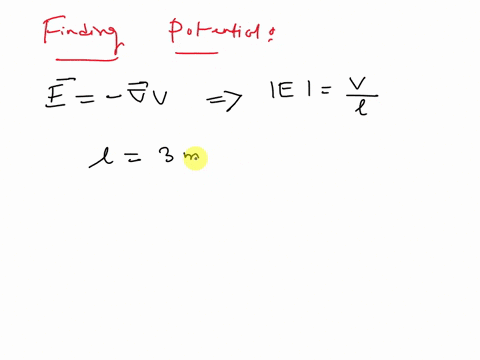 Finding Potential:
E⃗ = -∇⃗V => |E| = V/l
l = 3 m